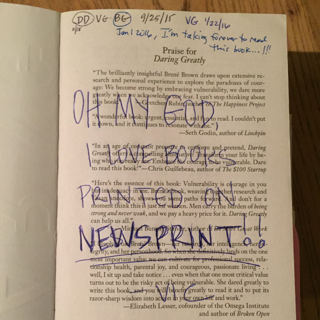 DD VG BG 9/25/15 VG 1/22/16
Jan 2016, I'm taking forever to read
this book...!!!
Praise for
Daring Greatly
"The brilliantly insightful Brené Brown draws upon extensive re-
search and personal experience to explore the paradoxes of cour-
age: We become strong by embracing vulnerability, we dare more
greatly when we acknowledge our fear. I can't stop thinking about
this book." —Gretchen Rubin, The Happiness Project
"A wonderful book: urgent, essential, and fun to read. I couldn't put
it down, and it continues to resonate
—Seth Godin, author of Linchpin
"In an age of constant pressure to conform and pretend, Daring
Greatly offers a compelling
ing who you really are.
to read this book!" —Chris Guillebeau, author of The $100 Startup
"Here's the essence of this book: Vulnerability is courage in you
moment think this is just for women. Men carry the burden of being
strong and never weak, and we pay a heavy price for it. Daring Greatly
can help us all."
most important value we can cultivate for professional success, rela-
tionship health, parental joy, and courageous, passionate living . . .
well, I sit up and take notice . . . even when that one most critical value
turns out to be the risky act of being vulnerable. She dared greatly to
write this book, and you will benefit greatly to read it and to put its
razor-sharp wisdom into action in your own life and work."
—Elizabeth Lesser, cofounder of the Omega Institute
and author of Broken Open
OH MY GOD,
I LOVE BOOKS
PRINTED ON
NEWSPRINT!!
— VIC